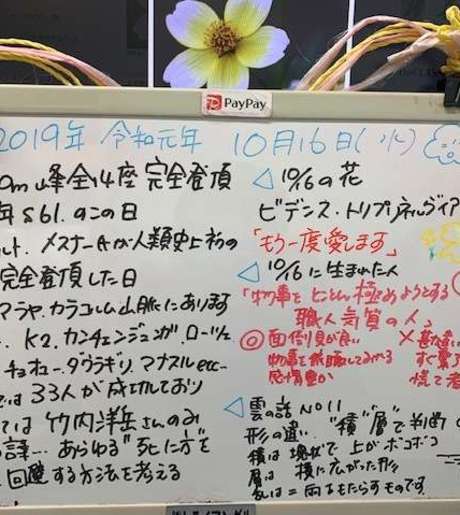 PayPay
2019年 令和元年 10月16日(水)
0m峰全14座完全登頂
年S61.のこの日
ルト.メスナー氏が人類史上初の
完全登頂した日
マラヤ、カラコルム山脈にあります
、K2、カンチェンジュンガ、ローツェ
チョオユー、ダウラギリ、マナスルetc…
では33人が成功しており
ては竹内洋岳さんのみ
あらゆる"死に方"を
回避する方法を考える
◁ 10/16の花
ビデンス・トリプリネルヴィア
「もう一度愛します」
◁ 10/16に生まれた人
「物事をとことん極めようとする
職人気質の人」
◎面倒見が良い
物事を俯瞰してみる
感情豊か
×
慌て者
◁ 雲の話 NO11
形の違い。"積""層"で判断
積は塊状で上がボコボコ
層は横に広がった形
乱は=雨をもたらすものです。